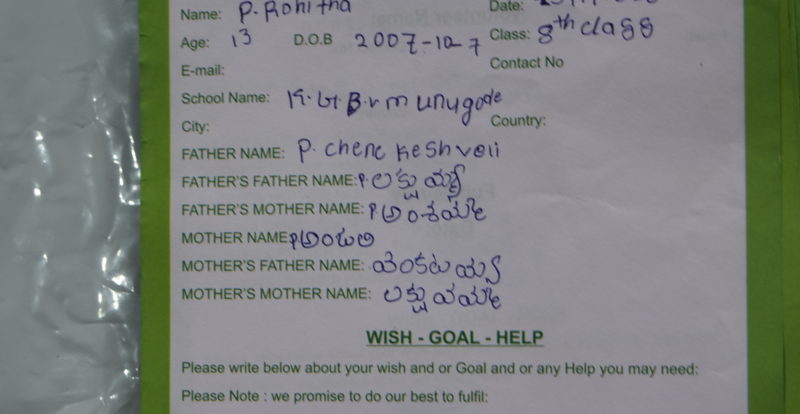 Name: P. Rohitha Date:
Age: 13 D.O.B 2007-10-7 Class: 8th class
E-mail: Contact No
School Name: K. G. B. V munugode
City: Country:
FATHER NAME: P. chenc keshveli
FATHER'S FATHER NAME: P. లక్ష్మయ్య
FATHER'S MOTHER NAME: P
MOTHER NAME P
MOTHER'S FATHER NAME: వెంకటయ్య
MOTHER'S MOTHER NAME: లక్ష్మమ్మ
WISH - GOAL - HELP
Please write below about your wish and or Goal and or any Help you may need:
Please Note : we promise to do our best to fulfil: